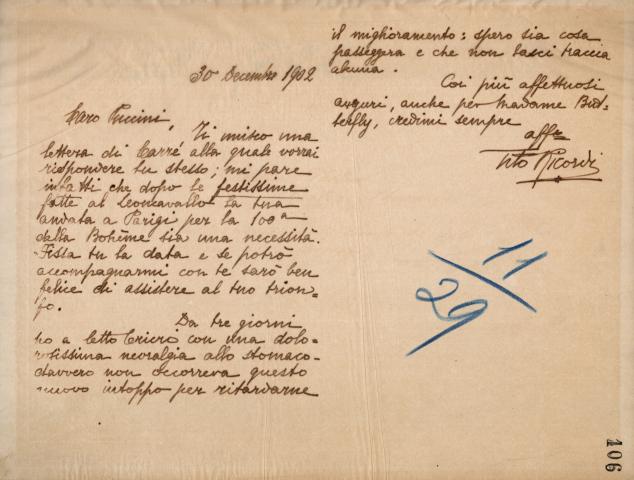 30 Decembre 1902
Caro Puccini,
Ti unisco una
lettera di Carré alla quale vorrai
rispondere tu stesso; mi pare
infatti che dopo le festissime
fatte al Leoncavallo la tua
andata a Parigi per la 100a
della Bohème sia una necessità.
Fissa tu la data e se potrò
accompagnarmi con te sarò ben
felice di assistere al tuo trion-
fo.
Da tre giorni
ho a letto Cricri con una dolo-
rosissima nevralgia allo stomaco -
davvero non occorreva questo
nuovo intoppo per ritardarne
il miglioramento: spero sia cosa
passeggera e che non lasci traccia
alcuna.
Coi più affettuosi
auguri, anche per Madame But-
terfly, credimi sempre
affo
Tito Ricordi
11
29
106